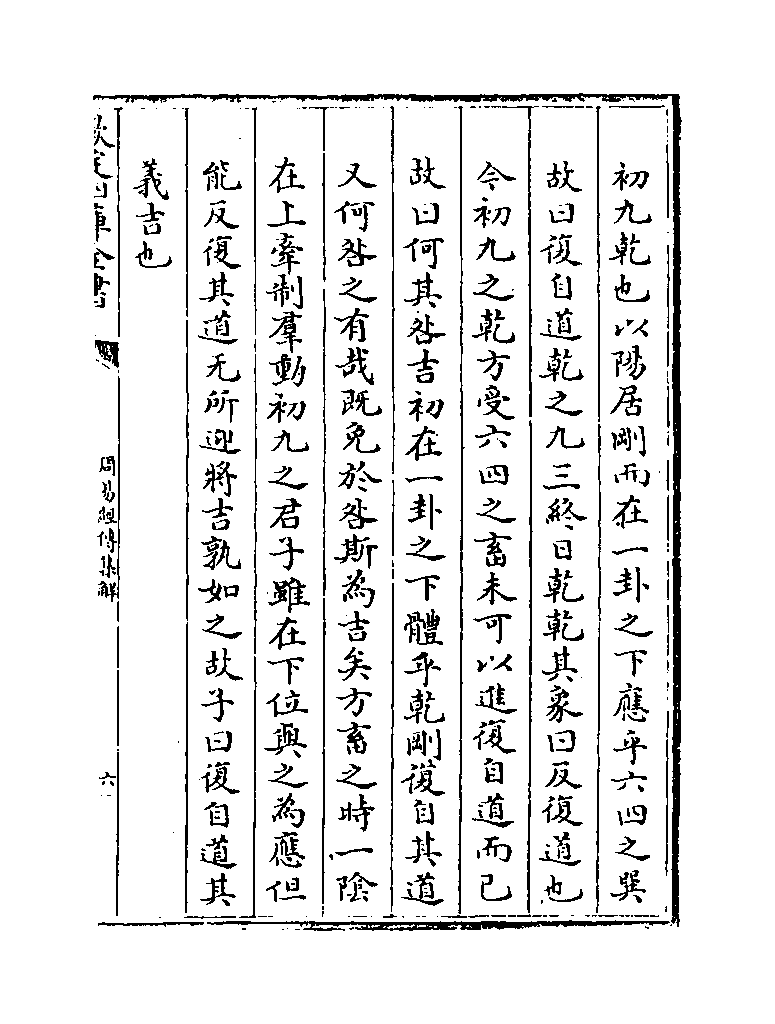 初九乾也以陽居剛而在一卦之下應乎六四之巽
故曰復自道乾之九三終日乾乾其象曰反復道也
今初九之乾方受六四之畜未可以進復自道而已
故曰何其咎吉初在一卦之下體乎乾剛復自其道
又何咎之有哉既免於咎斯為吉矣方畜之時一陰
在上牽制羣動初九之君子雖在下位與之為應但
能反復其道无所迎將吉孰如之故子曰復自道其
義吉也
欽定四庫全書
周易經傳集解
六